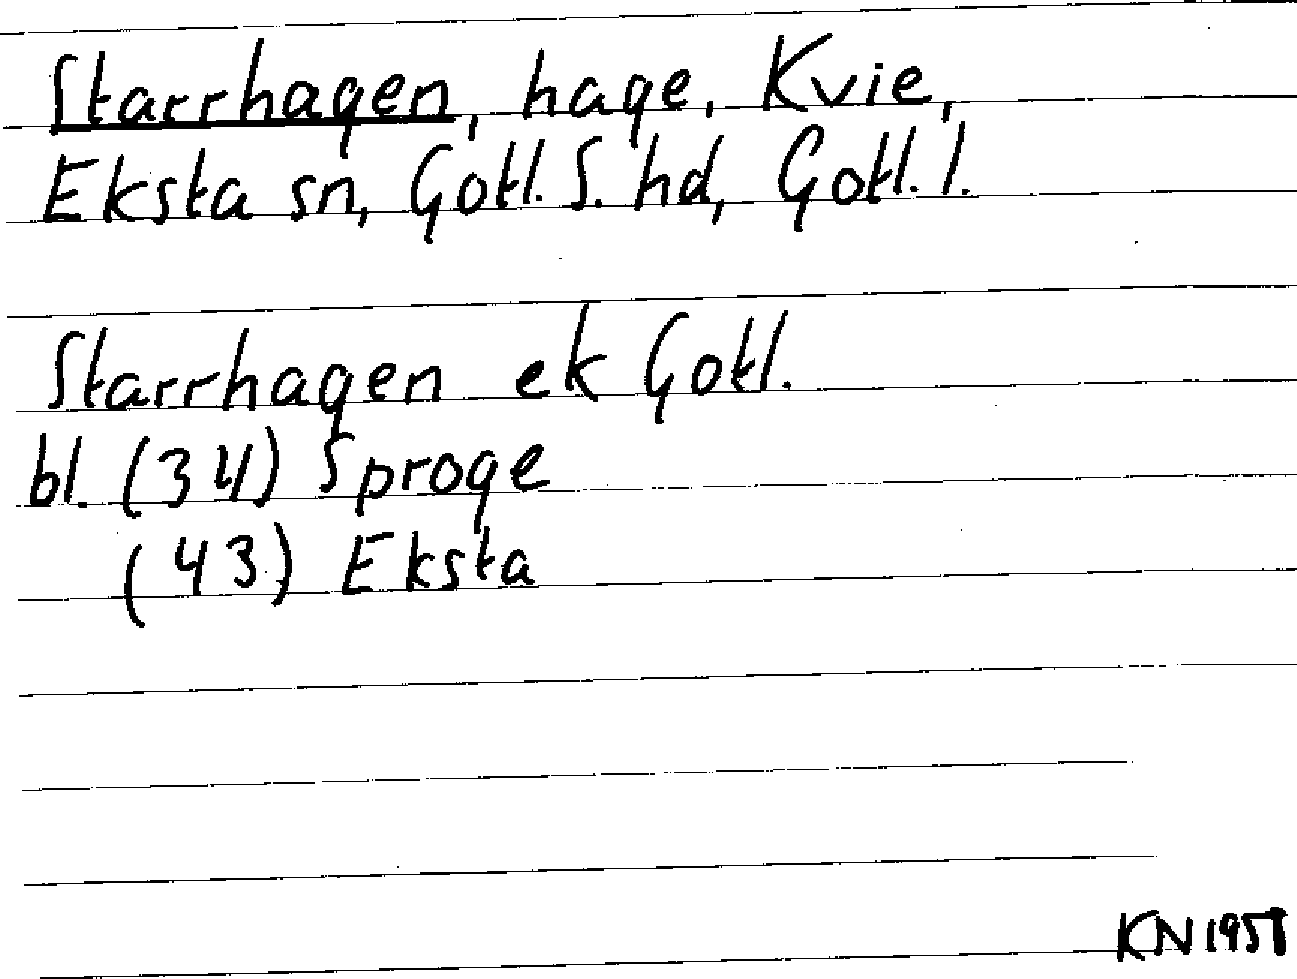 Starrhagen, hage, Kvie,
Eksta sn, Gotl. S. hd, Gotl. l.
Starrhagen ek Gotl.
bl. (34) Sproge
(43) Eksta
KN